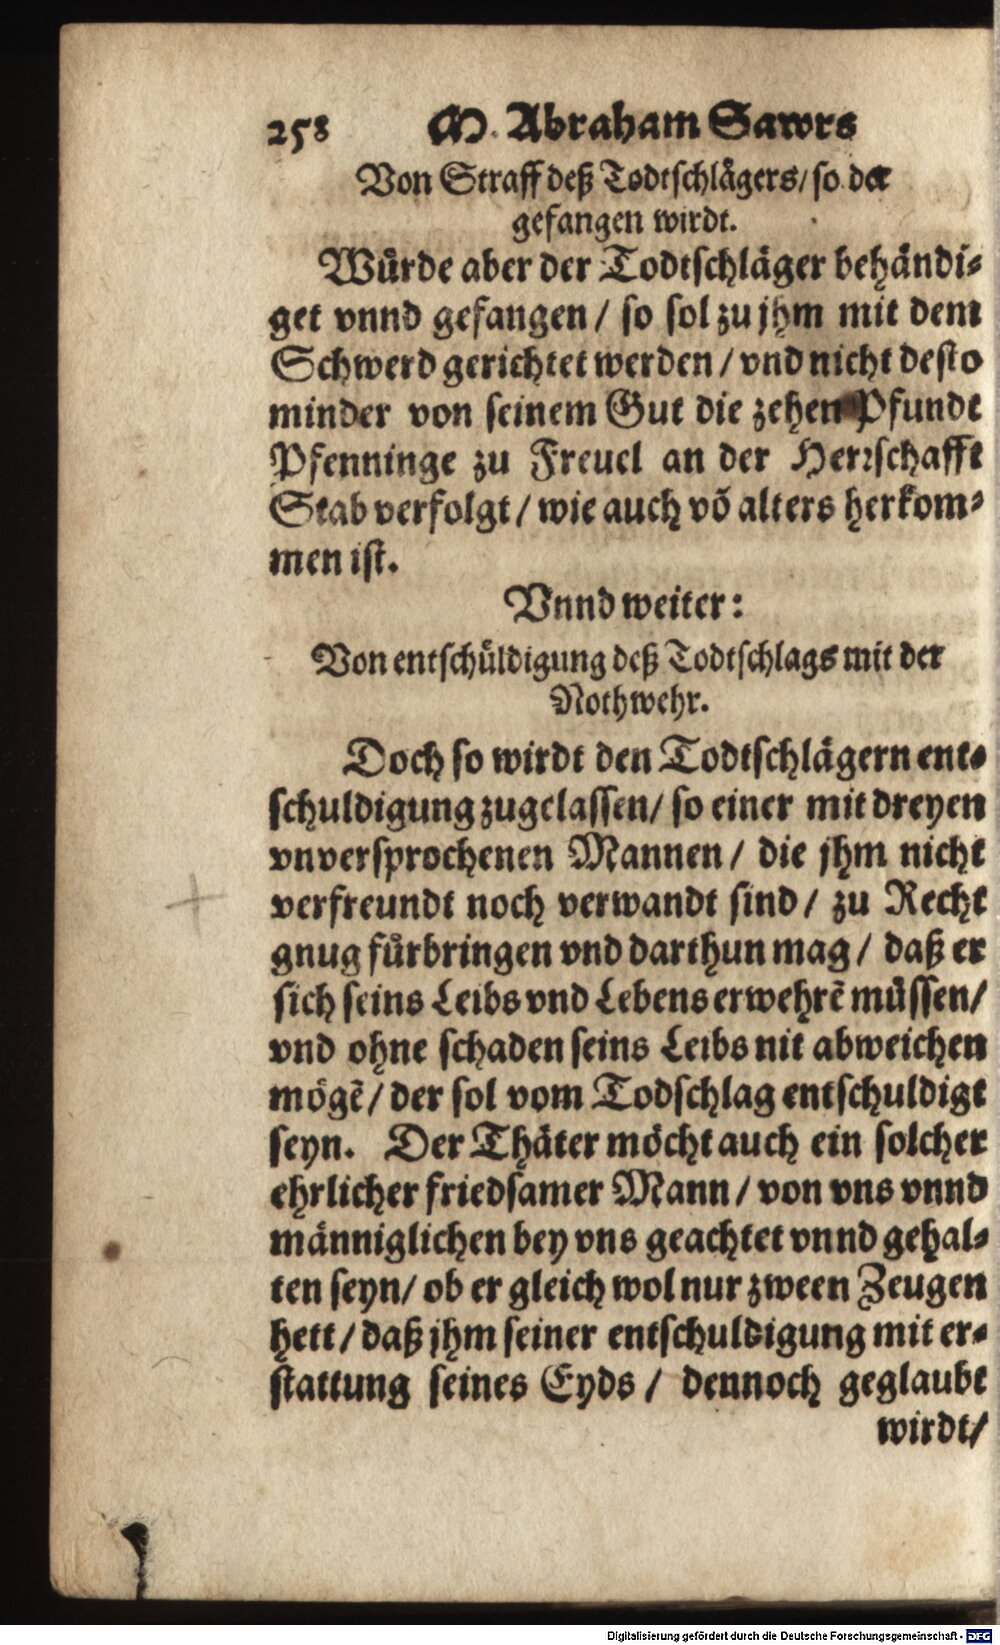 258 M. Abraham Sawrs
Von Straff deß Todtschlägers/ so der
gefangen wirdt.
Würde aber der Todtschläger behändi-
get vnnd gefangen / so sol zu jhm mit dem
Schwerd gerichtet werden / vnd nicht desto
minder von seinem Gut die zehen Pfundt
Pfenninge zu Freuel an der Herrschafft
Stab verfolgt / wie auch võ alters herkom-
men ist.
Vnnd weiter:
Von entschüldigung deß Todtschlags mit der
Nothwehr.
Doch so wirdt den Todtschlägern ent-
schuldigung zugelassen/ so einer mit dreyen
vnversprochenen Mannen / die jhm nicht
verfreundt noch verwandt sind / zu Recht
gnug fürbringen vnd darthun mag / daß er
sich seins Leibs vnd Lebens erwehrẽ müssen/
vnd ohne schaden seins Leibs nit abweichen
mögẽ / der sol vom Todschlag entschuldigt
seyn. Der Thäter möcht auch ein solcher
ehrlicher friedsamer Mann / von vns vnnd
männiglichen bey vns geachtet vnnd gehal-
ten seyn/ ob er gleich wol nur zween Zeugen
hett / daß jhm seiner entschuldigung mit er-
stattung seines Eyds / dennoch geglaubt
wirdt/
Digitalisierung gefördert durch die Deutsche Forschungsgemeinschaft - DFG